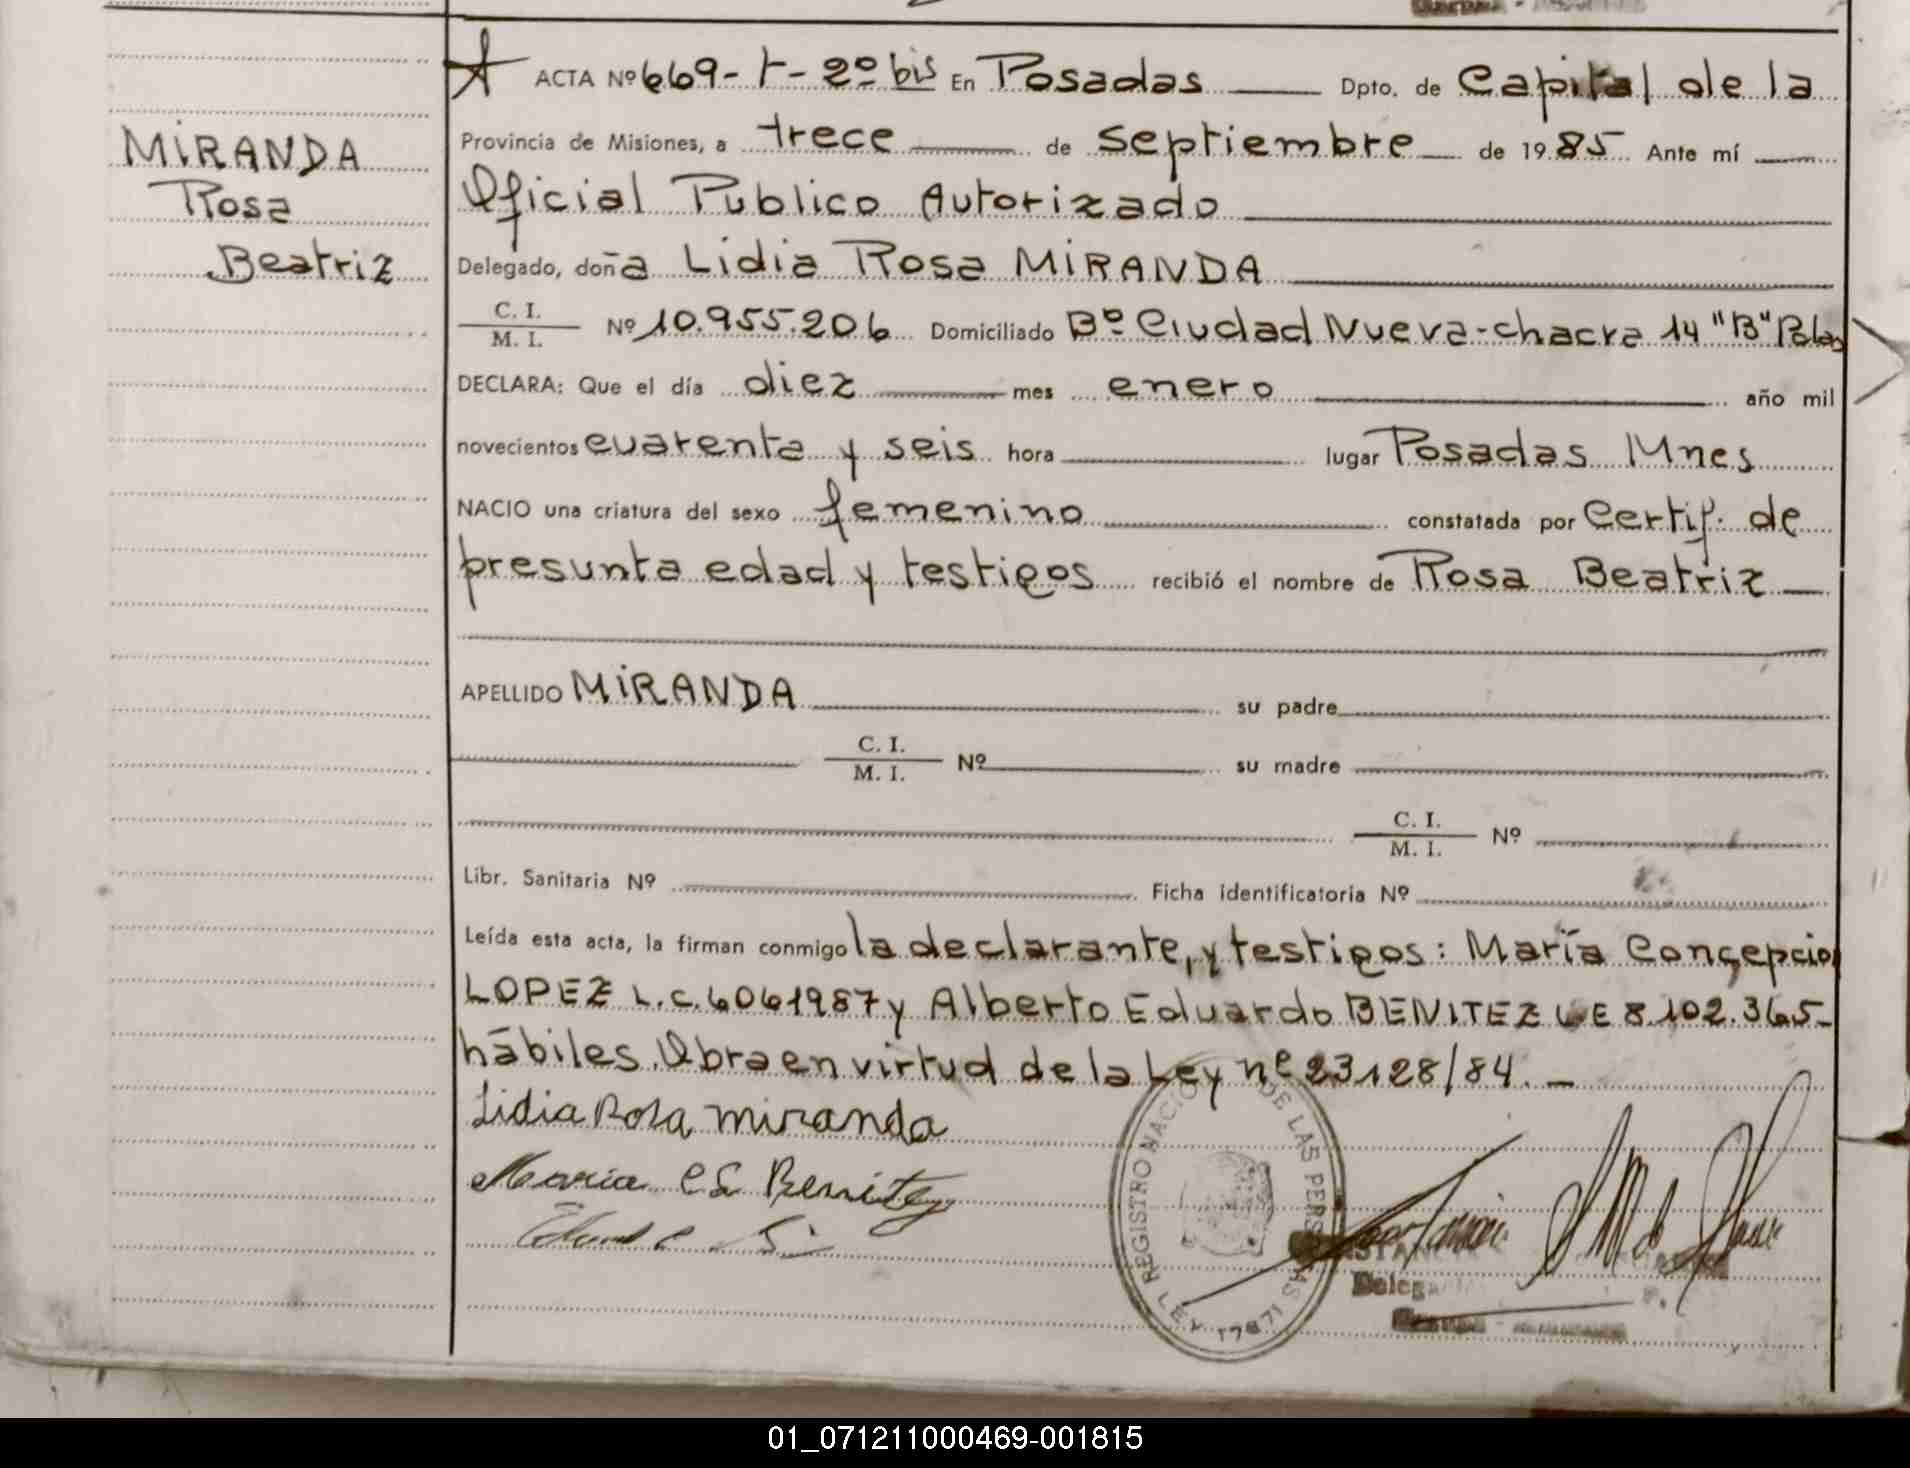 MIRANDA
Rosa
Beatriz
ACTA Nº 669-T-2º bis En Posadas Dpto. de Capital de la
Provincia de Misiones, a trece de septiembre de 1985 Ante mí
Oficial Publico Autorizado
Delegado, doña Lidia Rosa MIRANDA
C. I.
M. I.
Nº 10.955.206 Domiciliado Bº Ciudad Nueva-chacra 14 "B" Pdas
DECLARA: Que el día diez mes enero año mil
novecientos cuarenta y seis hora lugar Posadas Mnes
NACIO una criatura del sexo femenino constatada por Certif. de
presunta edad y testigos recibió el nombre de Rosa Beatriz
APELLIDO MIRANDA su padre
C. I.
M. I.
Nº su madre
C. I.
M. I.
Nº
Libr. Sanitaria Nº Ficha Identificatoria Nº
Leída esta acta, la firman conmigo la declarante, y testigos: María Concepcion
LOPEZ L.C. 6061987 y Alberto Eduardo BENITEZ LE 8.102.365-
hábiles. Obra en virtud de la Ley nº 23128/84. -
Lidia Rosa Miranda
Maria Benitez
REGISTRO NACIO DE LAS PERSONAS
LEY 17671
Delega
01_071211000469-001815